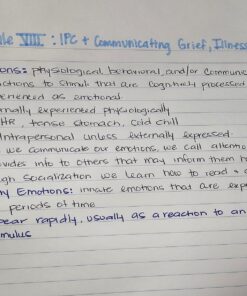 ule VIII : IPC + Communicating Grief, Illness
ons: physiological, behavioral, and/or communic
ctions to stimuli that are cognitively processed
perienced as emotional.
rnally experienced physiologically
HR, tense stomach, cold chill
Intrapersonal unless externally expressed
we communicate our emotions, we call attentio
ovides info to others that may inform them h
gh socialization we learn how to read +
ry Emotions: innate emotions that are exp
periods of time
pear rapidly, usually as a reaction to an
mulus